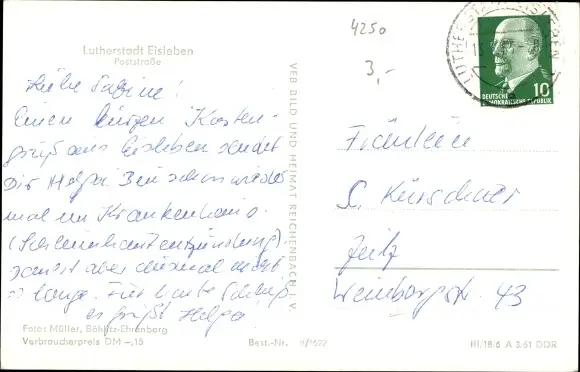 Lutherstadt Eisleben
Poststraße
Liebe Sabine!
Einen kurzen Karten-
gruß aus Eisleben sendet
Dir Helga. Bin schon wieder
mal im Krankenhaus.
(Schleimhautentzündung),
aber diesmal nicht
so lange. Für heute Schluß
es grüßt Helga
Foto: Müller, Böhlitz-Ehrenberg
Verbraucherpreis DM –,15
Best.-Nr.
VEB BILD UND HEIMAT REICHENBACH i. V.
4250
3,-
LUTHERSTADT EISLEBEN
10
DEUTSCHE
DEMOKRATISCHE REPUBLIK
Fräulein
S. Kürschner
Zeitz
43
III/18/6 A 3.61 DDR